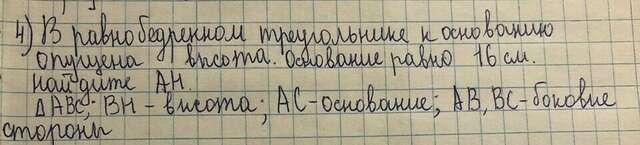 4) В равнобедренном треугольнике к основанию
опущена высота. Основание равно 16 см.
Найдите АН.
△ABC; BH - высота; AC-основание; AB, BC-боковые
стороны